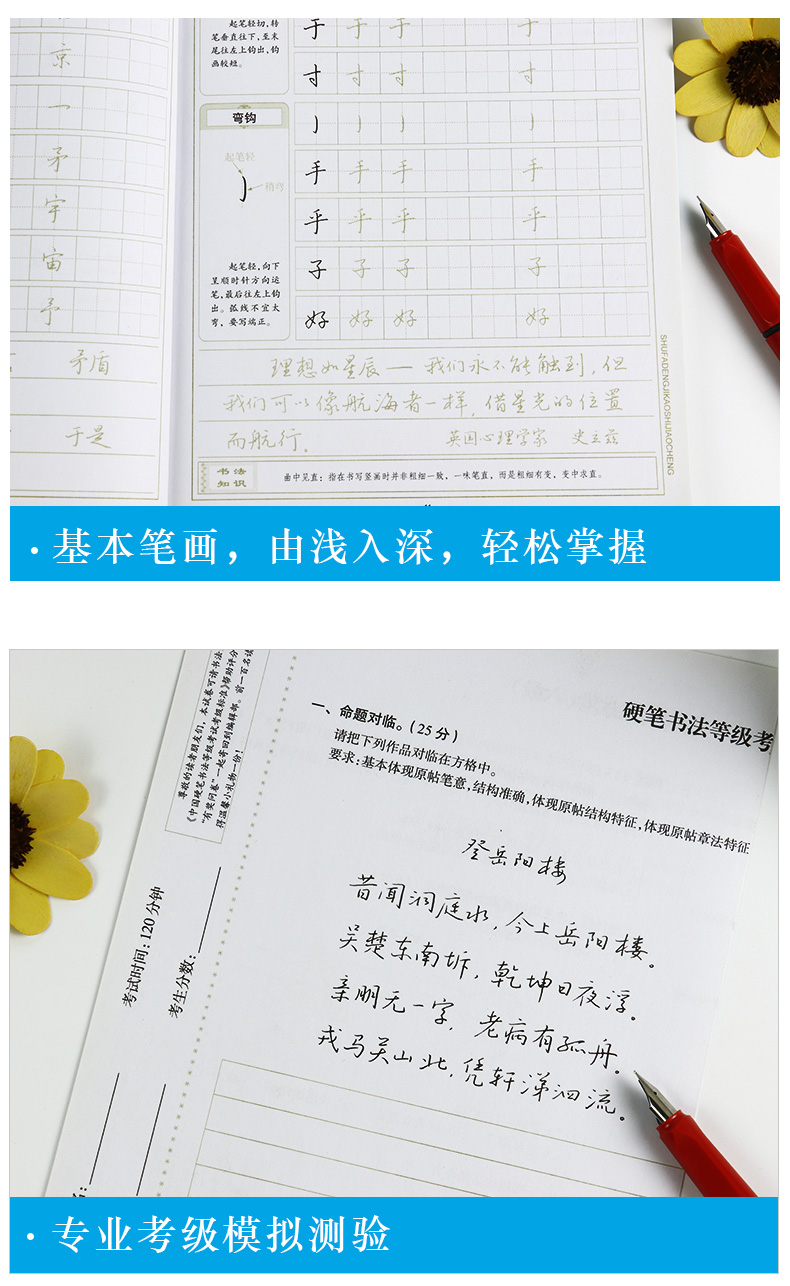 起笔轻切，转
笔垂直往下，至末
尾往左上钩出，钩
画较短。
于 于 于 于
寸 寸 寸 寸
弯钩
起笔轻
稍弯
起笔轻，向下
呈顺时针方向运
笔，最后往左上钩
出。弧线不宜太
弯，要写端正。
手 手 手 手
乎 乎 乎 乎
子 子 子 子
好 好 好 好
京
一
矛
宇
宙
予
矛盾
于是
理想如星辰——我们永不能触到，但
我们可以像航海者一样，借星光的位置
而航行。
英国心理学家 史立兹
书法
知识
曲中见直：指在书写竖画时并非粗细一致、一味笔直，而是粗细有变，变中求直。
SHUFADENGJIKAOSHIJIAOCHENG
·基本笔画，由浅入深，轻松掌握
尊敬的读者朋友们，本试卷可请书法
《中国硬笔书法等级考试考级标准》帮助评分
“有奖问卷”一起寄回到编辑部。前一百名读
得温馨小礼物一份！
考试时间：120分钟
考生分数：
硬笔书法等级考
一、命题对临。(25分)
请把下列作品对临在方格中。
要求：基本体现原帖笔意，结构准确，体现原帖结构特征，体现原帖章法特征
登岳阳楼
昔闻洞庭水，今上岳阳楼。
吴楚东南坼，乾坤日夜浮。
亲朋无一字，老病有孤舟。
戎马关山北，凭轩涕泗流。
·专业考级模拟测验